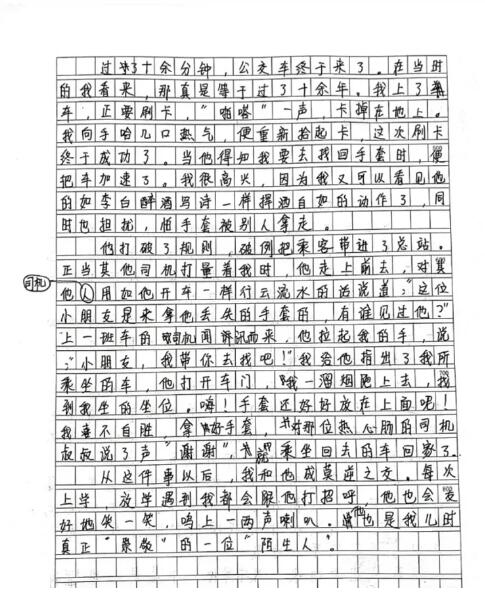 过了十余分钟，公交车终于来了。在当时
的我看来，那真是等于过了十余年。我上了
车，正要刷卡，“啪嗒”一声，卡掉在地上。
我向手哈几口热气，便重新拾起卡，这次刷卡
终于成功了。当他得知我要去找回手套时，便
把车加速了。我很高兴，因为我又可以看见他
的如李白醉酒写诗一样得洒自如的动作了，同
时也担扰，怕手套被别人拿走。
他打破了规则，破例把乘客带进了总站。
正当其他司机打量着我时，他走上前去，对其
司机
他人用如他开车一样行云流水的话说道：“这位
小朋友是来拿他丢失的手套的，有谁见过他？”
上一班车的司机闻讯而来，他拉起我的手，说
：“小朋友，我带你去找吧！”我给他指出了我所
乘坐的车，他打开车门，我一溜烟跑上去，找
到我坐的坐位。嗨！手套还好好放在上面呢！
我喜不自胜，拿好手套，对那位热心肠的司机
叔叔说了声“谢谢”，就乘坐回去的车回家了。
从这件事以后，我和他成莫逆之交。每次
上学，放学遇到我都会跟他打招呼，他也会友
好地笑一笑，鸣上一两声喇叭。他也是我儿时
真正“崇敬”的一位“陌生人”。